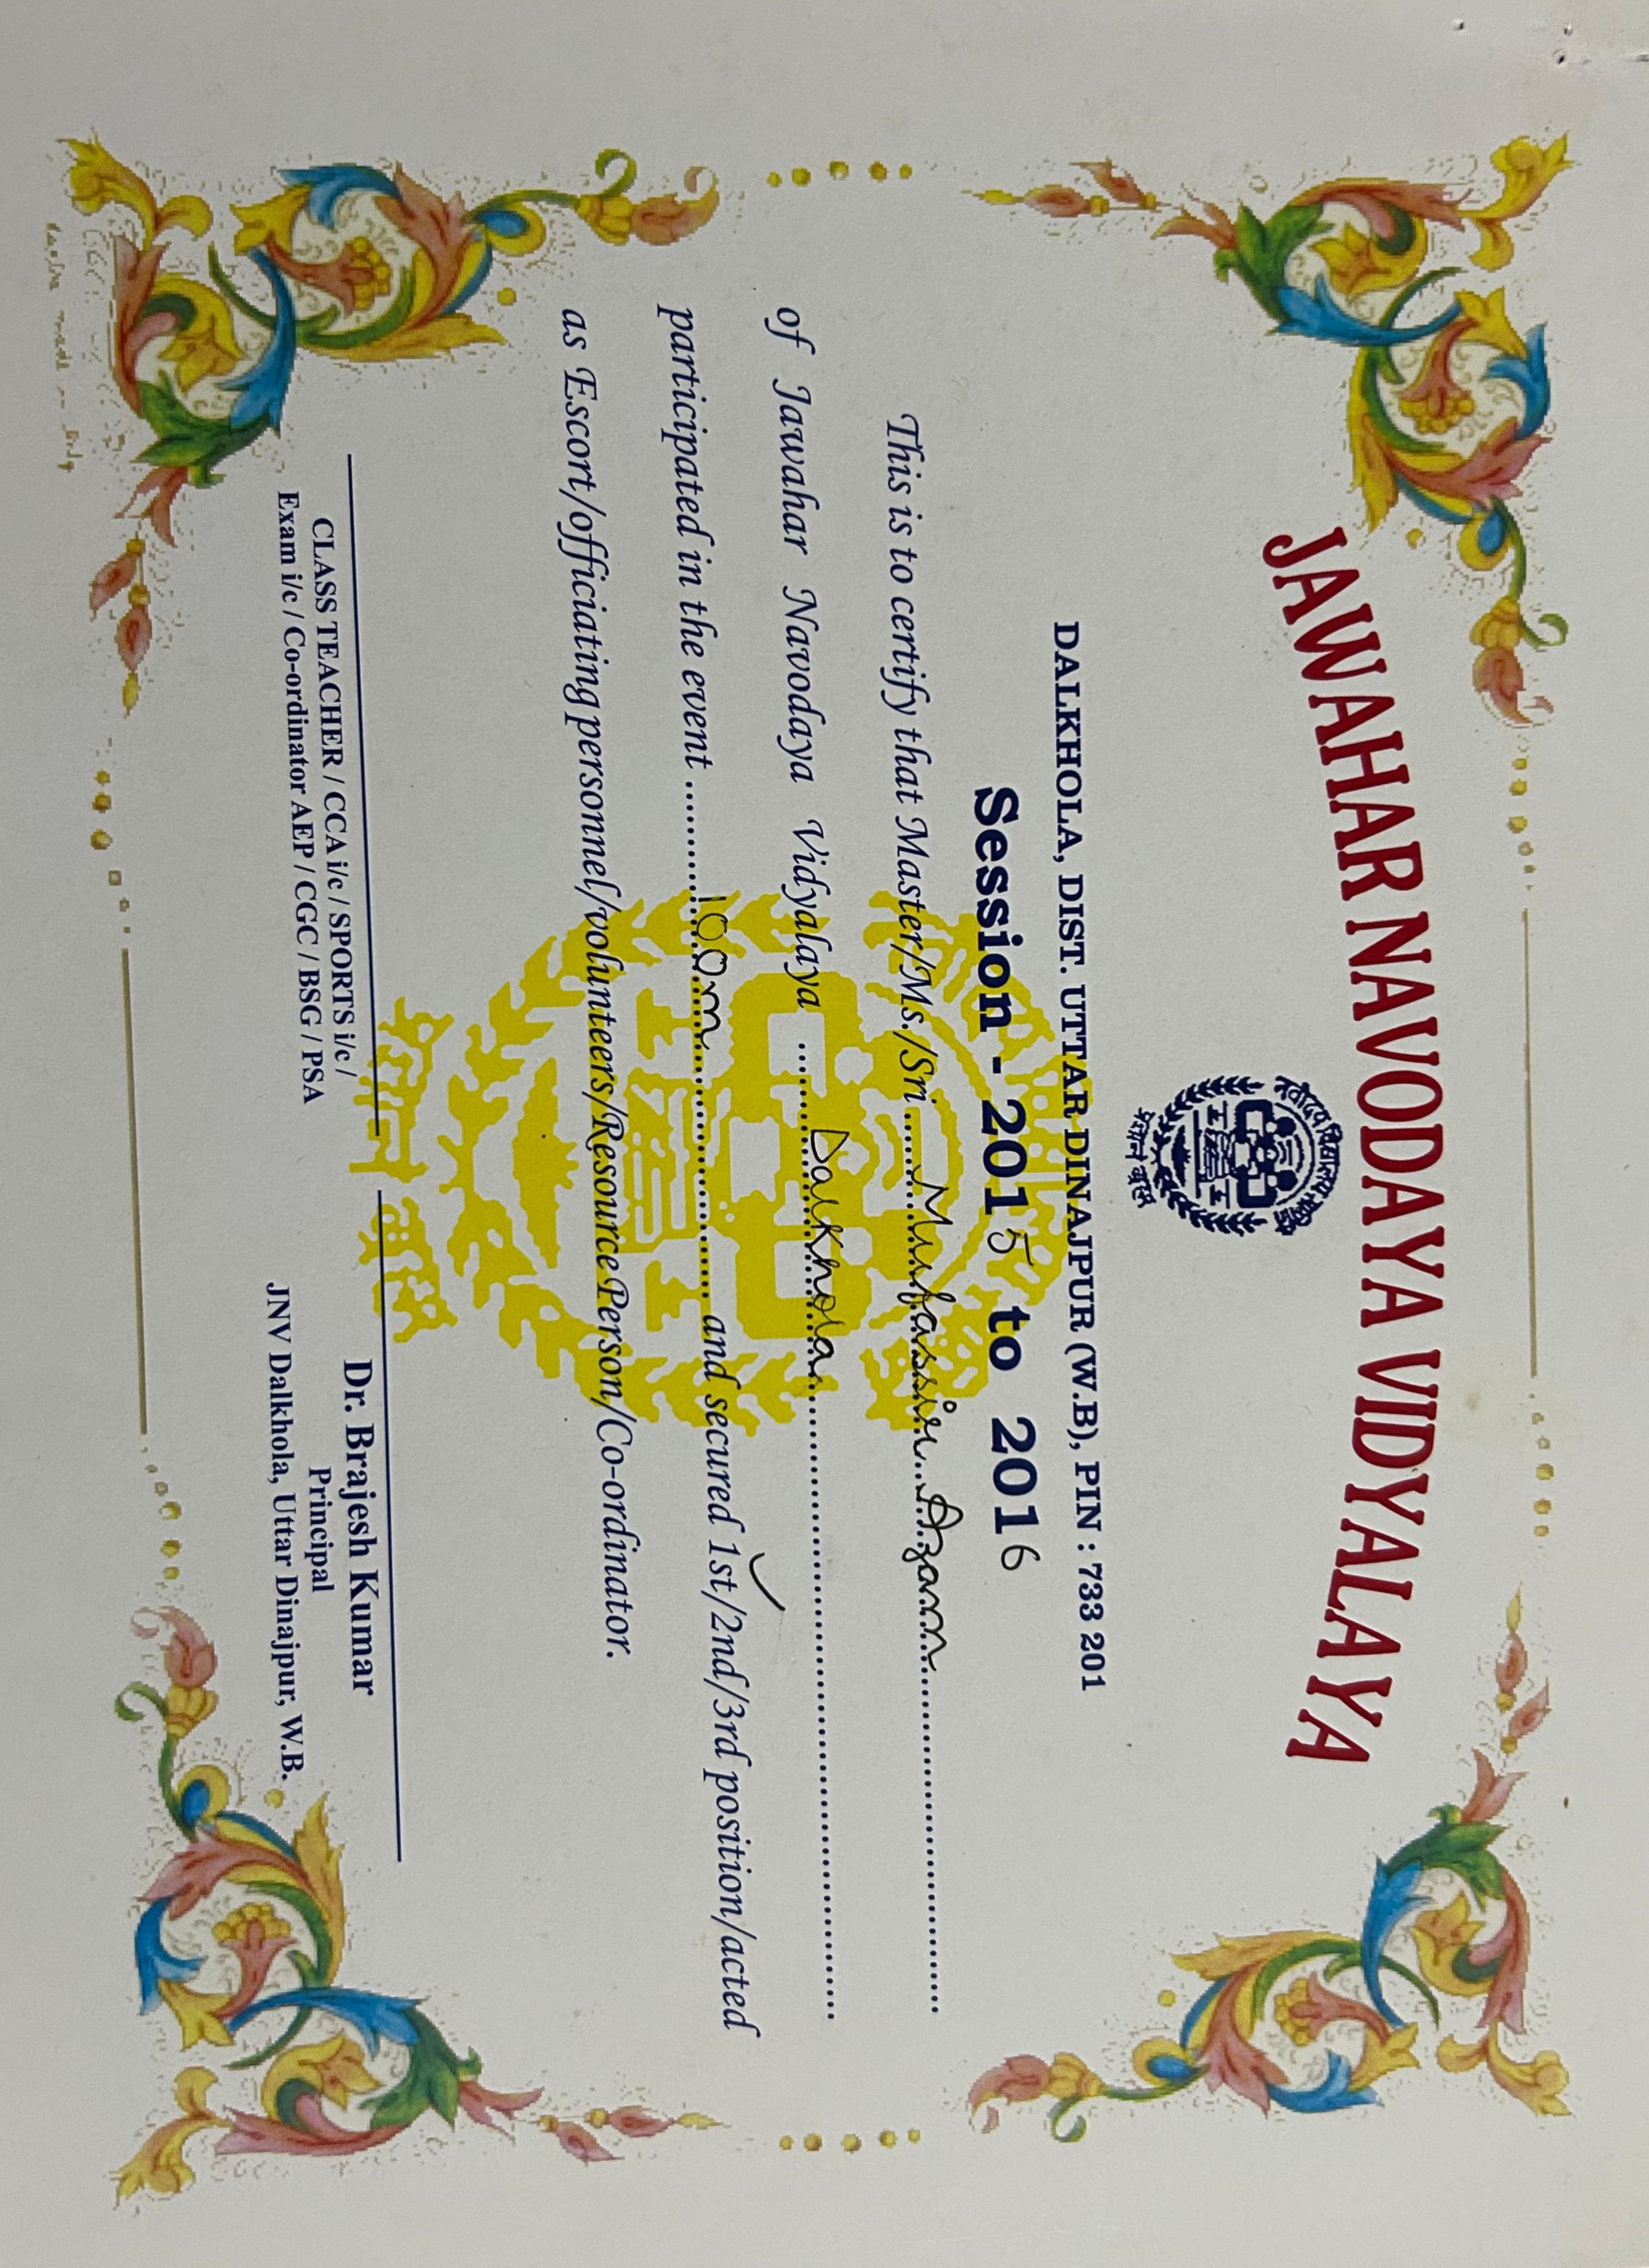 JAWAHAR NAVODAYA VIDYALAYA
नवोदय विद्यालय समिति
प्रज्ञानं ब्रह्म
DALKHOLA, DIST. UTTAR DINAJPUR (W.B), PIN : 733 201
Session - 2015 to 2016
This is to certify that Master/Ms./Sri Mubassir Azam
of Jawahar Navodaya Vidyalaya Dalkhola
participated in the event 100m and secured 1st/2nd/3rd position/acted
as Escort/officiating personnel/volunteers/Resource Person/Co-ordinator.
CLASS TEACHER / CCA i/c / SPORTS i/c /
Exam i/c / Co-ordinator AEP / CGC / BSG / PSA
Dr. Brajesh Kumar
Principal
JNV Dalkhola, Uttar Dinajpur, W.B.